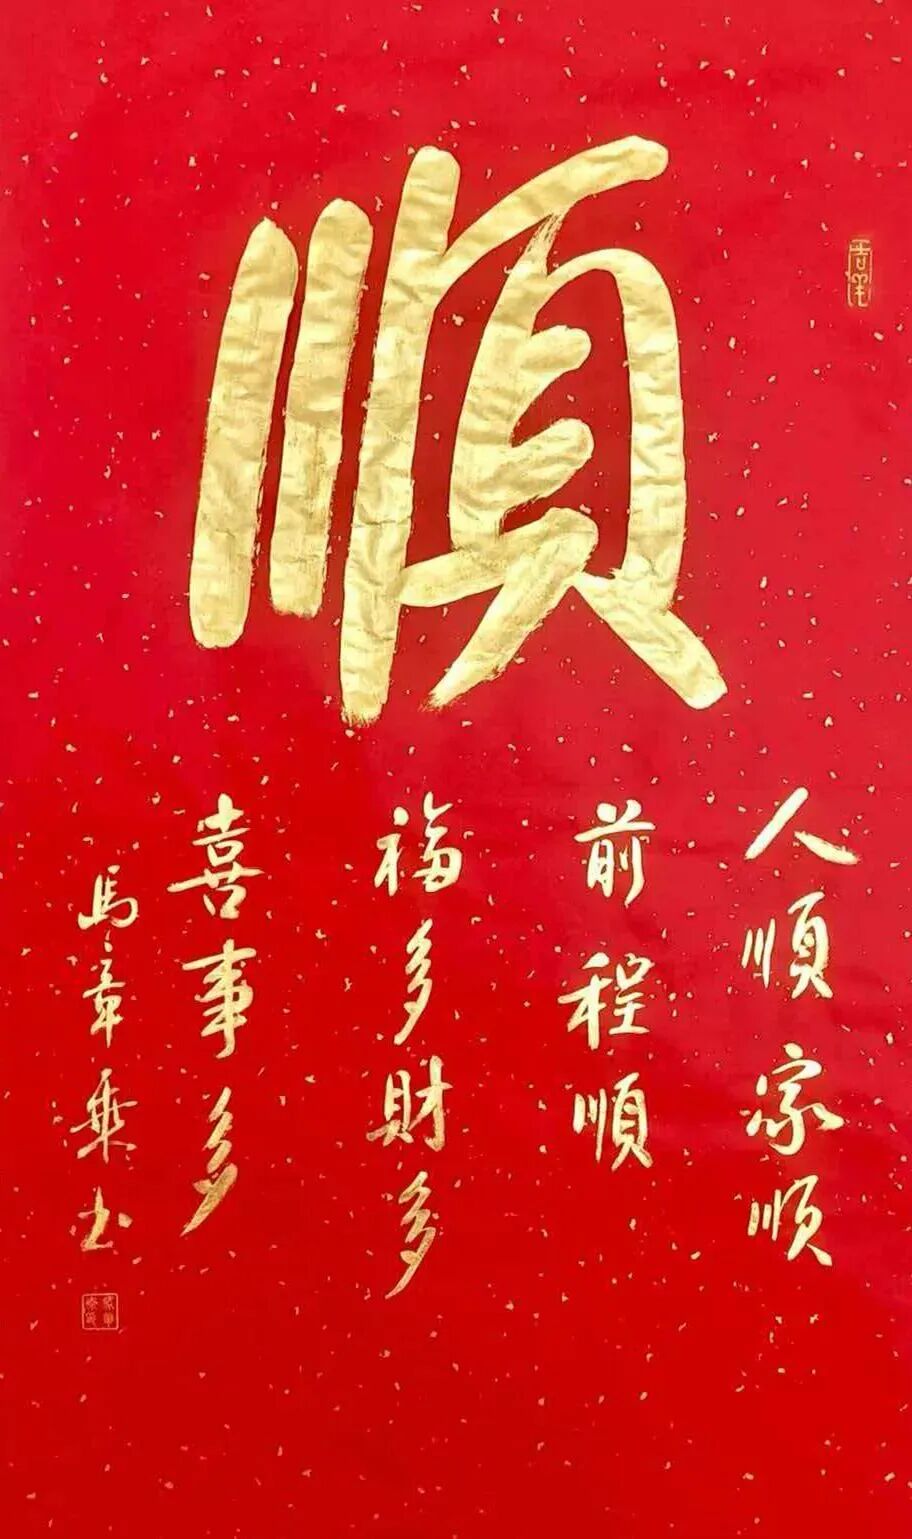 順
人順家順
前程順
福多財多
喜事多
馬章乗书
吉羊